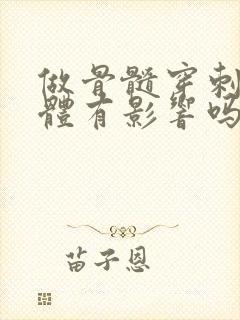 做骨髓穿刺
體有影響嗎
苗子恩